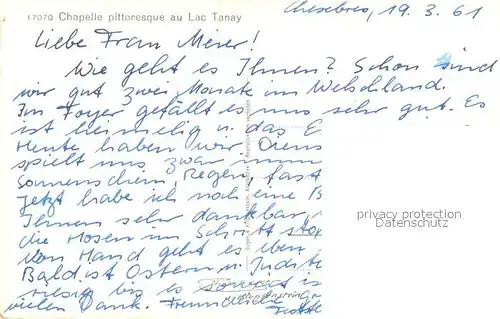 17070 Chapelle pittoresque au Lac Tanay
Chexbres, 19. 3. 61
Liebe Frau Meier!
Wie geht es Ihnen? Schon sind
wir gut zwei Monate im Welschland.
Im Foyer gefällt es uns sehr gut. Es
ist heimelig u. das E
Heute haben wir Diens
spielt uns zwar imm
Sonnenschein, Regen, fast
Jetzt habe ich noch eine B
Ihnen sehr dankbar,
die Hosen im Schritt sto
Von Hand geht es eben
Bald ist Ostern u. Judith
riesig bis es soweit is
vielen Dank. Freundliche Gr
privacy protection